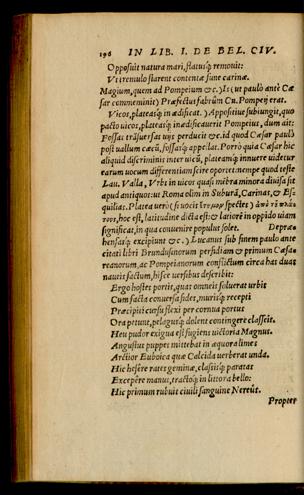 196 IN LIB. I. DE BEL. CIV.
Opposuit natura mari, flatusq́; remouit:
Vt remulo starent contentæ fune carinæ.
Magium, quem ad Pompeium &c.) Is (ut paulò antè Cæ
sar commeminit) Præfectus fabrûm Cn. Pompeij erat.
Vicos, plateasq́; inædificat.) Appositiue subiungit, quo
pacto uicos, plateasq́; inædificauerit Pompeius, dum ait:
Fossas trãsuersas uijs perducit &c. id quod Cæsar paulò
post uallum cæcũ, fossasq́; appellat. Porrò quia Cæsar hic
aliquid discriminis inter uicũ, plateamq́; innuere uidetur
earum uocum differentiam scire oportet: nempe quod teste
Lau. Valla, Vrbs in uicos quasi mẽbra minora diuisa sit
apud antiquos: ut Romæ olim in Suburã, Carinas, & Es
quilias. Platea uerò (si uocis spectes) ἀπὸ τῦ πλά-
τους, hoc est, latitudine dicta est: & lariorẽ in oppido uiam
significat, in qua conuenire populus solet. Depræ-
hensasq́; excipiunt &c.) Lucanus sub finem paulo ante
citati libri Brundusinorum perfidiam & primum Cæsa-
reanorum, ac Pompeianorum conflictum circa has duas
nauis factum, hisce uersibus describit:
Ergo hostes portis, quas omneis soluerat urbis
Cum facta conuersa fides, murisq́; recepti
Præcipiti cursu flexi per cornua portus
Ora petunt, pelagusq́; dolent contingere classeis.
Heu pudor exigua est fugiens uictoria Magnus.
Angustus puppes mittebat in æquora limes
Arctior Euboica quæ Calcida uerberat unda.
Hic hesere rates geminæ, classiq́; paratas
Excepêre manus, tractoq́; in littora bello:
Hic primum rubuit ciuili sanguine Nereûs.
Propter